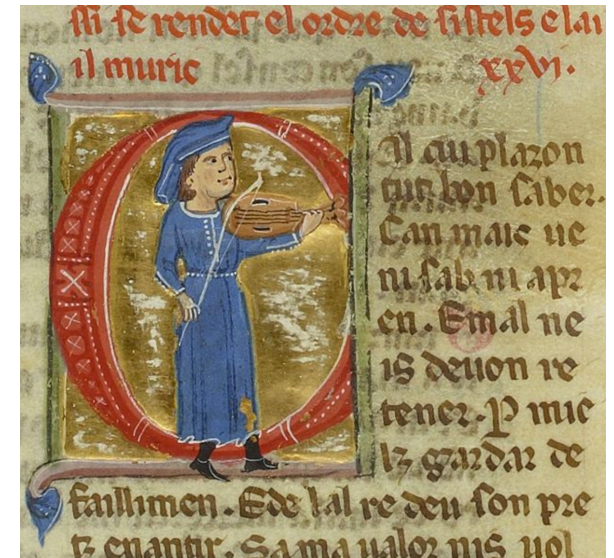 ssi se rendet el ordre de sistels e lai
il muric xxvi.
al cui plazon
tuit bon saber.
ni sab ni apr
en. E mal ne
is deuon re
tener. P mie
lz gardar de
faillimen. E de lal re deu son pre
tz enantir. Sa ma ualor nis uol